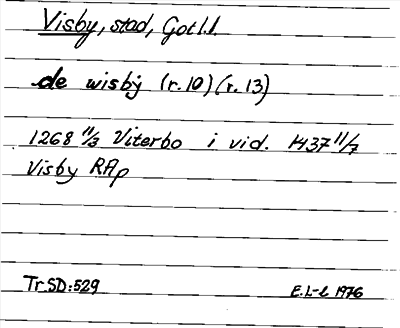 Visby, stad, Gotl.l.
de wisbÿ (r.10) (r.13)
1268 11/3 Viterbo i vid. 1437 11/7
Visby RAp
Tr SD:529
E.L-l 1976